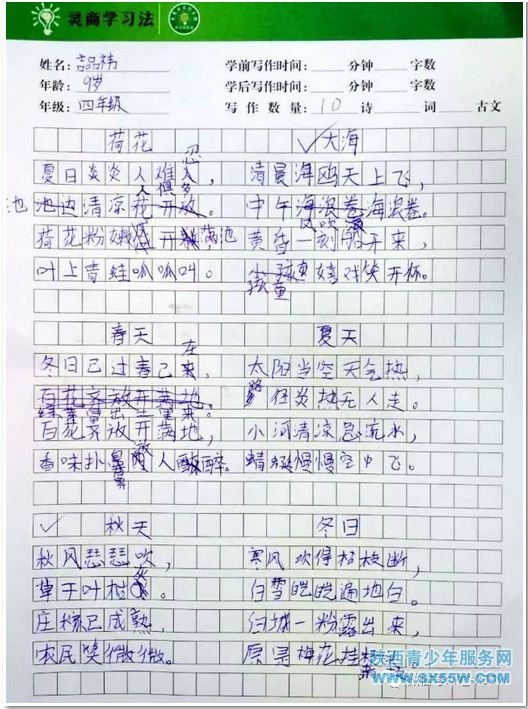 灵商学习法
姓名:
学前写作时间: 分钟 字数
年龄: 9岁
学后写作时间: 分钟 字数
年级: 四年级
写作数量: 10 诗 词 古文
荷花
大海
夏日炎炎人难忍,
清晨海鸥天上飞,
池边清凉人俱多
中午海浪卷海浪卷。
荷花粉嫩开满池
黄昏一刻船开来,
叶上青蛙呱呱叫。
孩童嬉戏笑开怀。
春天
夏天
冬日已过春已来,
太阳当空天气热,
百花齐放开满地。
路径炎热无人走。
百花齐放开满地,
小河清凉急流水,
香味扑鼻人醉。
蜻蜓慢慢空中飞。
秋天
冬日
秋风瑟瑟吹,
寒风吹得枯枝断,
草干叶枯
白雪皑皑遍地白。
庄稼已成熟,
白城一粉露出来,
农民笑微微。
原是梅花挂
陕西青少年服务网
WWW.SX55W.COM